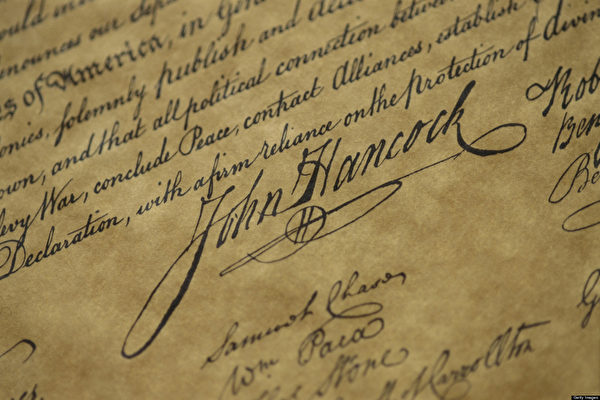 ould in
nounces our Sepa
s of America, in Gen
onies, solemnly publish and decl
own, and that all political connection between
evy War, conclude Peace, contract Alliances, establish
Declaration, with a firm reliance on the protection of divin
John Hancock
Rob
Ben
Be
Samuel Chase
Wm Paca
Stone
Carrollton
G
Getty Images